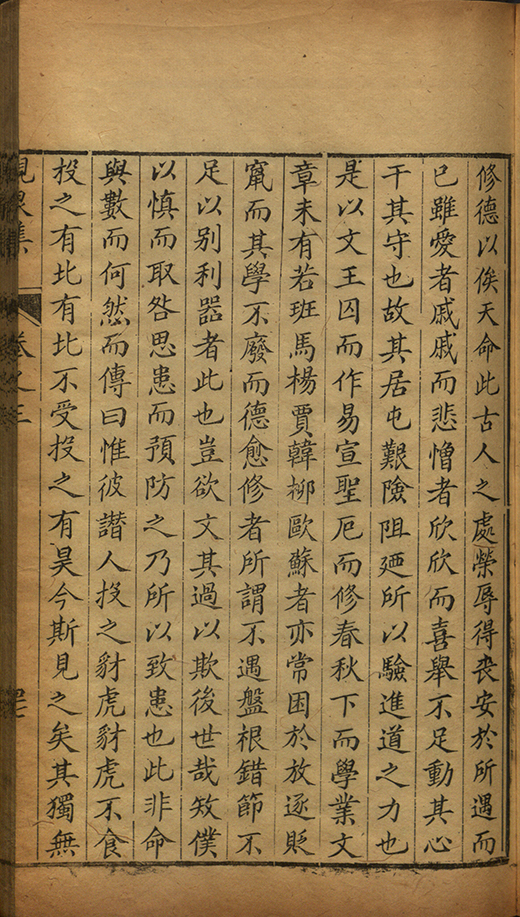 修德以俟天命此古人之處榮辱得喪安於所遇而
已雖愛者戚戚而悲憎者欣欣而喜舉不足動其心
干其守也故其居屯艱險阻廼所以驗進道之力也
是以文王囚而作易宣聖厄而修春秋下而學業文
章未有若班馬楊賈韓柳歐蘇者亦常困於放逐貶
竄而其學不廢而德愈修者所謂不遇盤根錯節不
足以別利器者此也豈欲文其過以欺後世哉妏僕
以慎而取咎思患而預防之乃所以致患也此非命
與數而何然而傳曰惟彼譖人投之豺虎豺虎不食
投之有北有北不受投之有昊今斯見之矣其獨無
集
卷之三